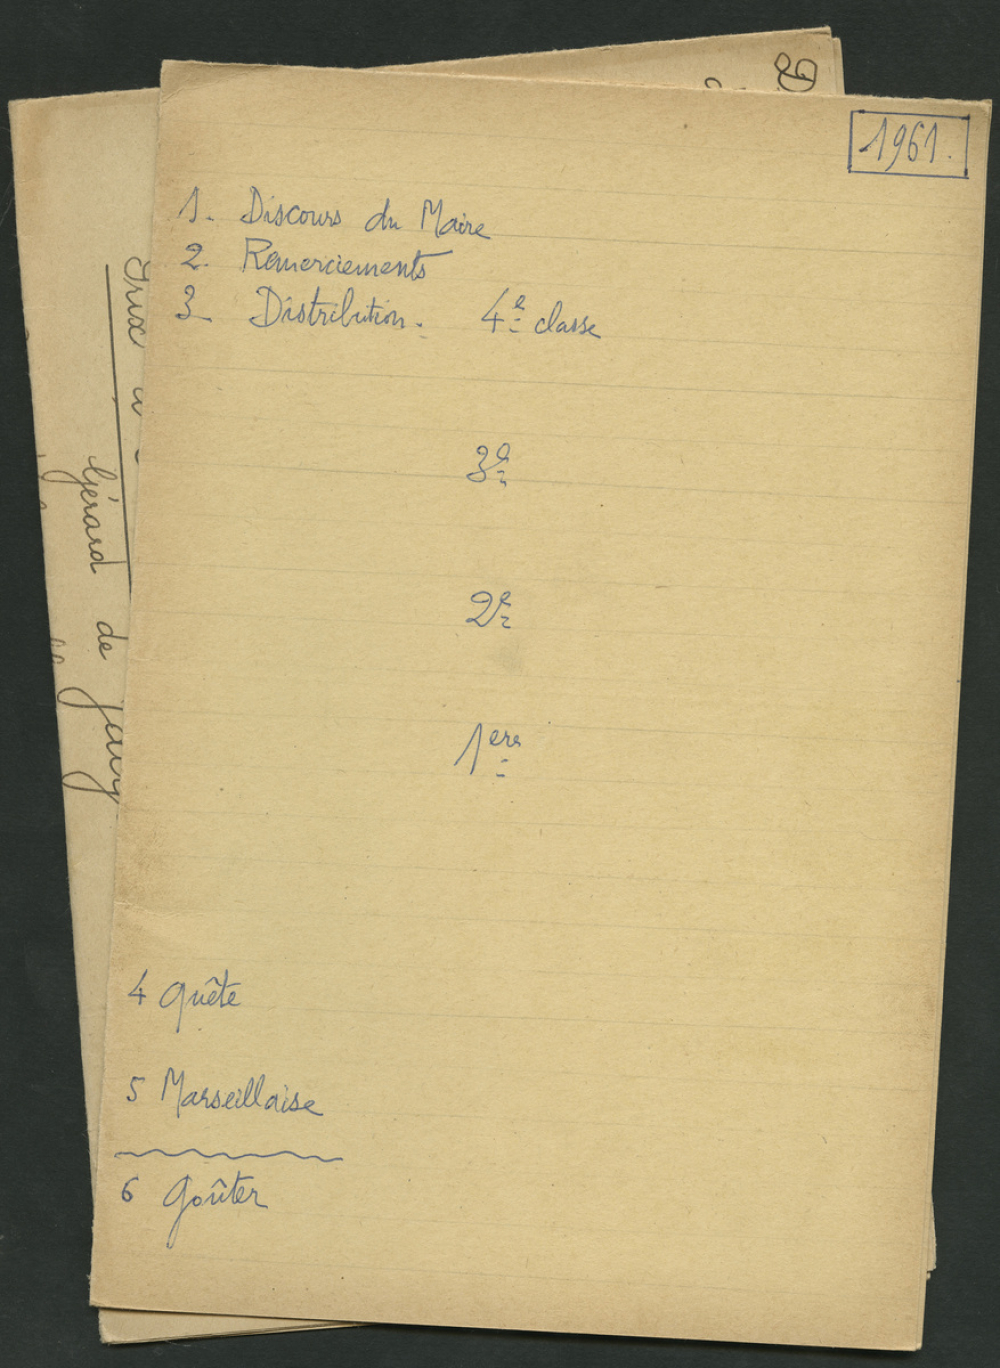 1961.
1. Discours du Maire
2. Remerciements
3 Distribution. 4e classe
3e
2e
1ere
4 Quête
5 Marseillaise
6 Goûter
Prix
Gérard de